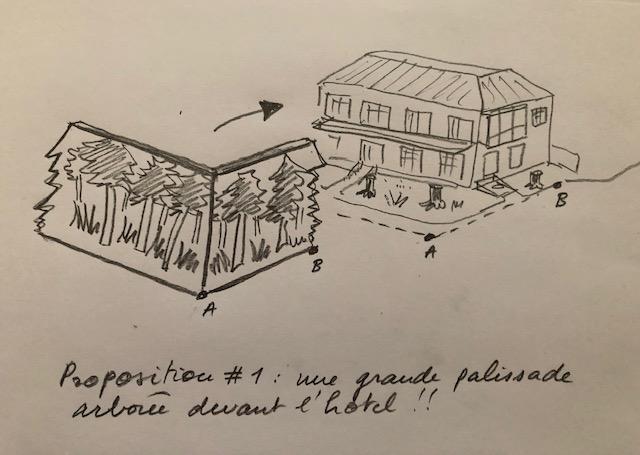 A
B
A
B
Proposition #1 : une grande palissade
arborée devant l'hôtel !!